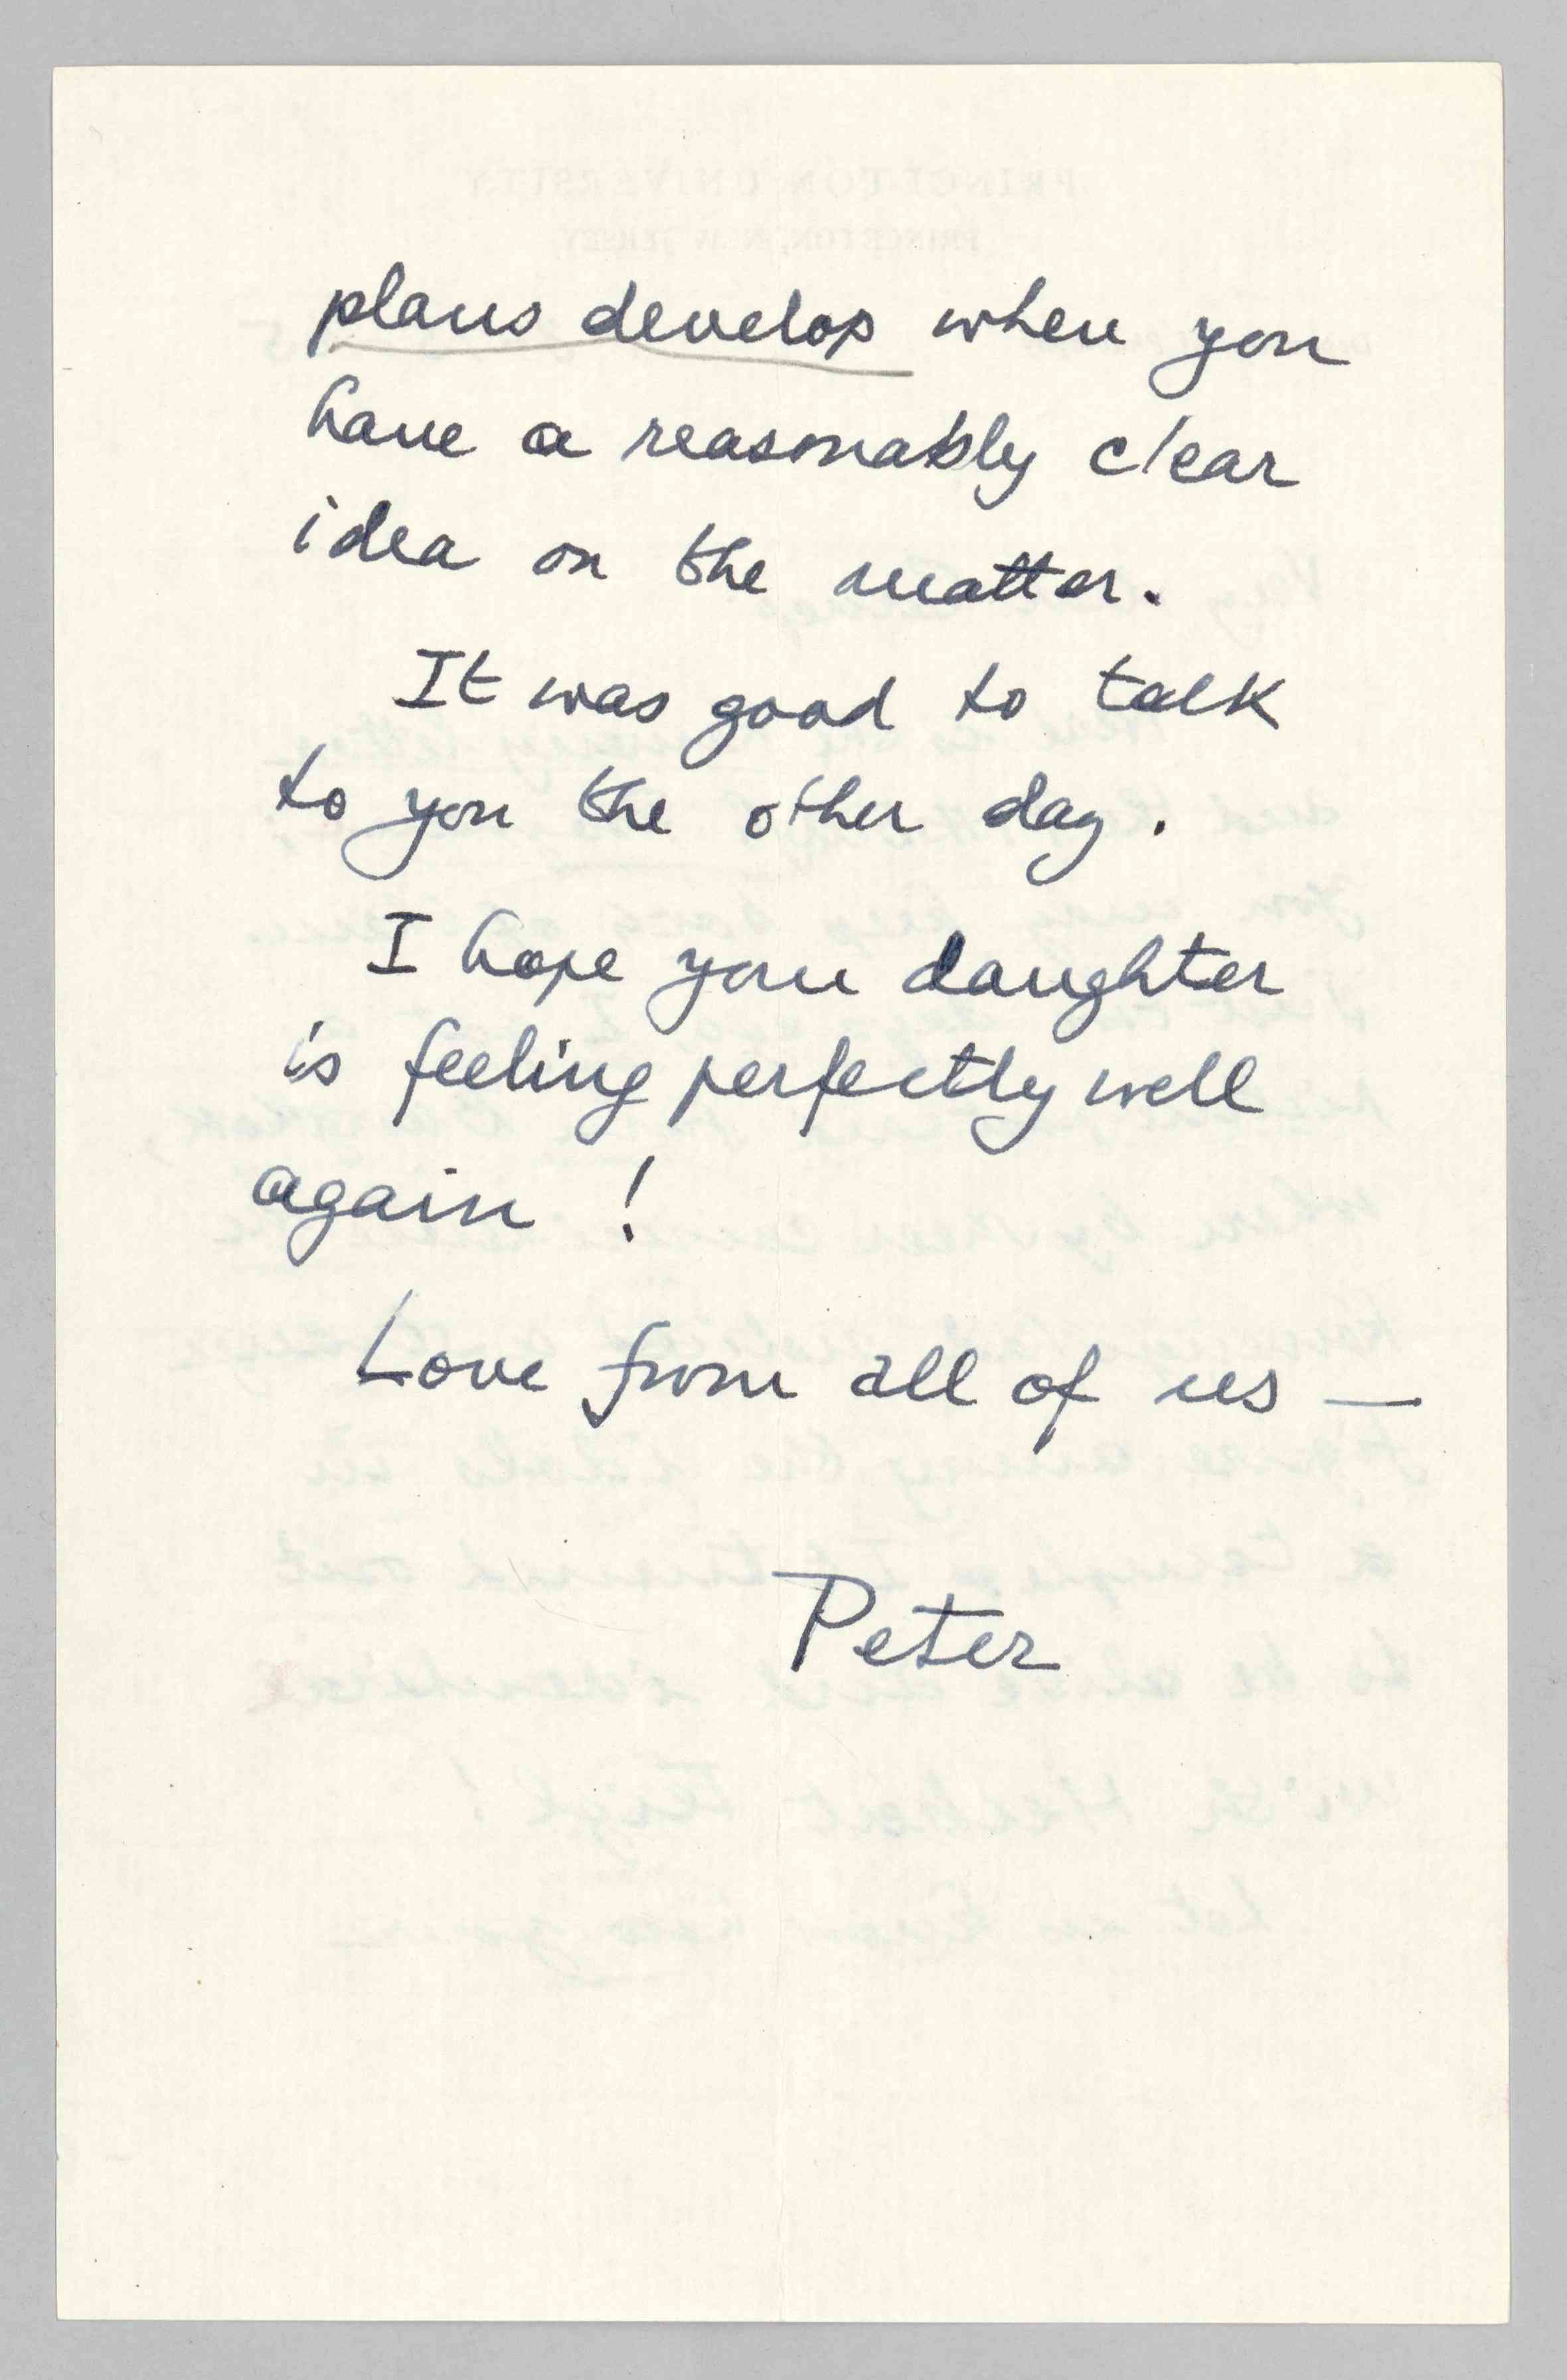 plans develop when you
have a reasonably clear
idea on the matter.
It was good to talk
to you the other day.
I hope your daughter
is feeling perfectly well
again!
Love from all of us —
Peter